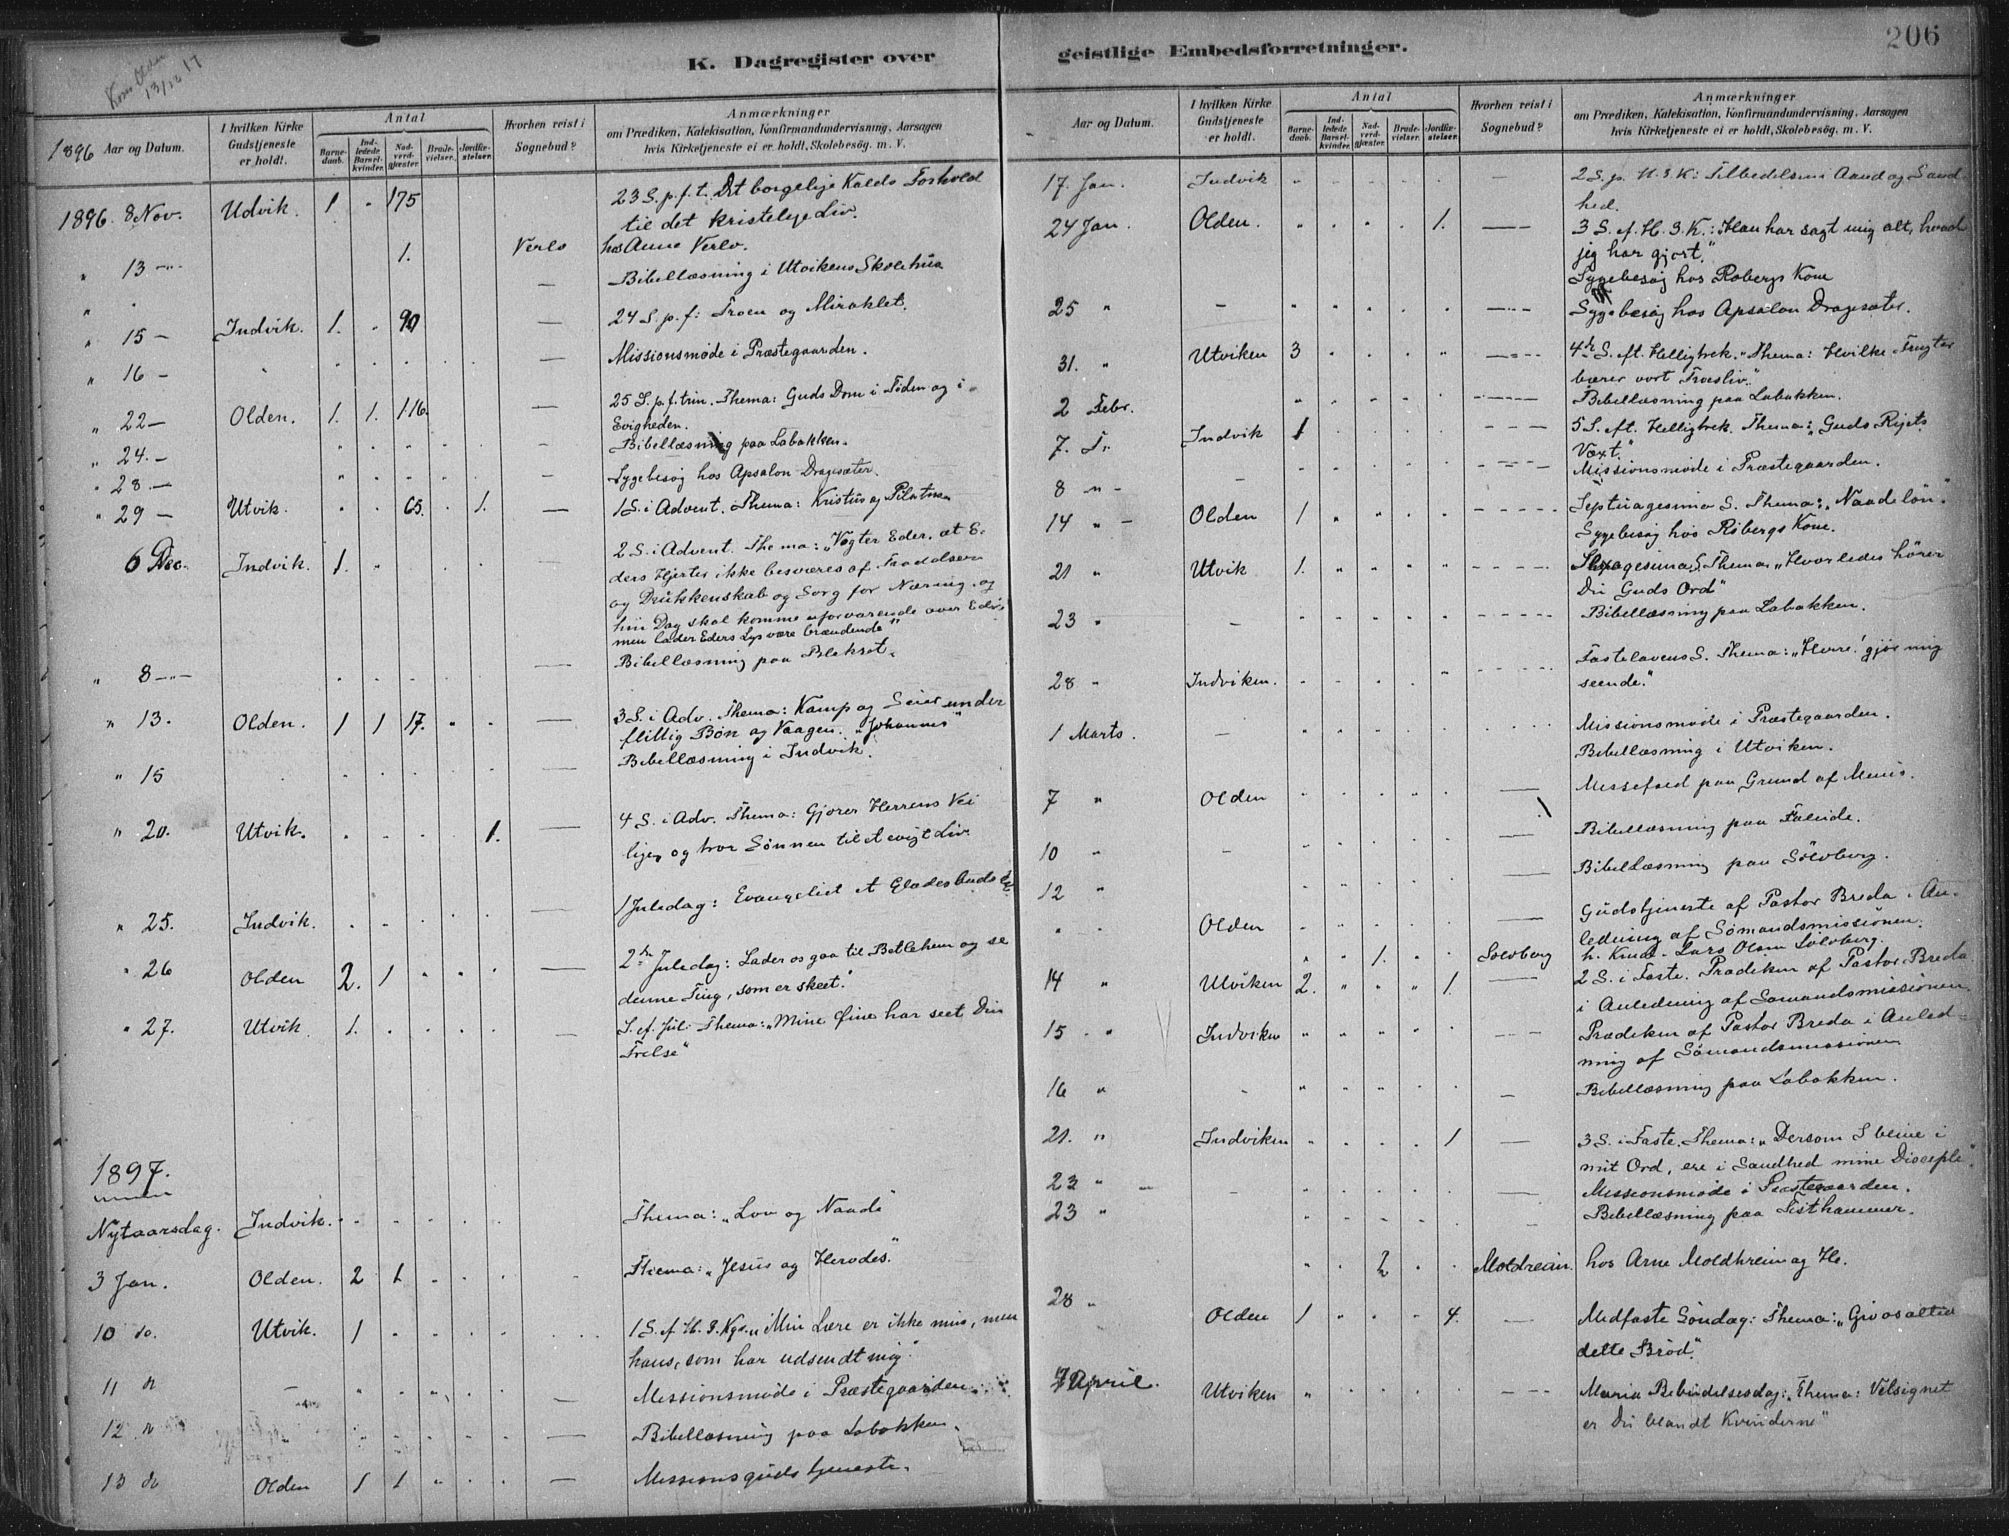 K. Dagregister over geistlige Embedsforretninger.
206
13/12 17
1896
Aar og Datum.
I hvilken Kirke Gudstjeneste er holdt.
Antal
Barnedaab.
Indledede Barselkvinder.
Nadverdgjæster.
Brudevielser.
Jordfæstelser.
Hvorhen reist i Sognebud?
Anmærkninger
om Prædiken, Katekisation, Konfirmandundervisning, Aarsagen
hvis Kirketjeneste ei er holdt, Skolebesøg. m. V.
1896. 8 Nov. Udvik. 1 " 175 23 S. p. f. t. Det borgelige Kalds Forhold
til det kristelige Liv.
1. Verlo hos Anne Verlo.
" 13 — Bibellæsning i Utvikens Skolehus
" 15 — Indvik. 1. . 90 — 24 S. p. f: Troen og Miraklet.
" 16 — Missionsmøde i Præstegaarden.
" 22 — Olden. 1. 1. 116. — 25 S. p. f. trin. Thema: Guds Dom i Tiden og i
Evigheden.
" 24. — Bibellæsning paa Løbakken.
" 28. — Sygebesøg hos Apsalon Dragesæter.
" 29 — Utvik. . . 65. . 1. — 1 S. i Advent. Thema: Kristus og Pilatus
6 Dec. Indvik. 1. 2 S. i Advent. Thema: „Vogter Eder, at E-
ders Hjerter ikke besværes af Fraadseri
og Drukkenskab og Sorg for Næring, og
hin Dag skal komme uforvarende over Eder,
men lader Eders Lys være brændende"
" 8 — — Bibellæsning paa Blakset.
" 13. Olden. 1 1 17. " . — 3 S. i Adv. Thema: Kamp og Seier under
flittig Bøn og Vaagen. „Johannes"
" 15 — Bibellæsning i Indvik.
" 20. Utvik. . . . . 1. — 4 S. i Adv. Thema: Gjører Herrens Vei
lige, og tror Sønnen til et evigt Liv.
" 25. Indvik. — 1 Juledag: Evangeliet et Glædesbudskab
" 26 Olden 2. 1 " " " — 2den Juledag: Lader os gaa til Betlehem og se
denne Ting, som er skeet."
" 27. Utvik. 1. — S. ef. Jul. Thema: „Mine Øine har seet Din
Frelse"
1897.
Nytaarsdag. Indvik. Thema: „Lov og Naade
3 Jan. Olden. 2 1 Thema: „Jesus og Herodes."
10 do. Utvik. 1 1 S. ef H. 3. Kgs. „Min Lære er ikke min, men
hans, som har udsendt mig"
11 do — Missionsmøde i Præstegaarden
12 do — Bibellæsning paa Løbakken.
13 do Olden 1 1 — Missionsgudstjeneste.
Aar og Datum.
I hvilken Kirke Gudstjeneste er holdt.
Antal
Barnedaab.
Indledede Barselkvinder.
Nadverdgjæster.
Brudevielser.
Jordfæstelser.
Hvorhen reist i Sognebud?
Anmærkninger
om Prædiken, Katekisation, Konfirmandundervisning, Aarsagen
hvis Kirketjeneste ei er holdt, Skolebesøg. m. V.
17. Jan. Indvik — 2 S. p. H. 3. K: Tilbedelsen i Aand og Sand-
hed.
24 Jan. Olden. 1. — 3 S. ef. H. 3. K.: „Han har sagt mig alt, hvad
jeg har gjort."
Sygebesøg hos Robergs Kone
25 " — Sygebesøg hos Apsalon Dragesæter.
31. " Utviken 3 — 4de S. eft. Helligtrek. „Thema: Hvilke Frugter
bærer vort Troesliv."
2 Febr. Bibellæsning paa Løbakken.
7. F. Indvik 1 5 S. eft. Helligtrek. Thema: „Guds Riges
Væxt."
8 " — Missionsmøde i Præstegaarden.
14 " — Olden 1 Septuagesima S. Thema: „Naadeløn."
Sygebesøg hos Robergs Kone.
21 " Utvik 1. Sexagesima S. Thema: „Hvorledes hører
Du Guds Ord"
23 " — Bibellæsning paa Løbakken.
28 " Indviken. Fastelavens S. Thema: „Herre! gjør mig
seende."
1 Marts. — Missionsmøde i Præstegaarden.
Bibellæsning i Utviken.
7 " Olden — Messefald paa Grund af Menis.
10 " — Bibellæsning paa Faleide.
12 " Bibellæsning paa Sølvberg.
" " Olden — Gudstjeneste af Pastor Breda i An-
ledning af Sømandsmissionen.
1. Solvberg h. Knud Lars Olsen Sølvberg.
14 " Utviken 2. " " " 1. — 2 S. i Faste. Prædiken af Pastor Breda
i Anledning af Sømandsmissionen
15 " Indviken — Prædiken af Pastor Breda i Anled-
ning af Sømandsmissionen
16 " — Bibellæsning paa Løbakken.
21. " Indviken 1 — 3 S. i Faste. Thema: „Dersom I blive i
mit Ord, ere i Sandhed mine Disciple".
23 " — Missionsmøde i Præstegaarden.
23 " Bibellæsning paa Tisthammer.
2 Moldreim. hos Arne Moldhreim og H.
28 " Olden 1 " " " 4. — Midfaste Søndag: Thema: „Giv os altid
dette Brød."
7 April. Utviken Maria Bebudelsesdag: „Thema: Velsignet
er Du blandt Kvinderne"